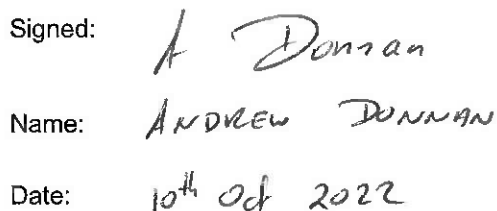 Signed: A Donnan
Name: ANDREW DONNAN
Date: 10th Oct 2022